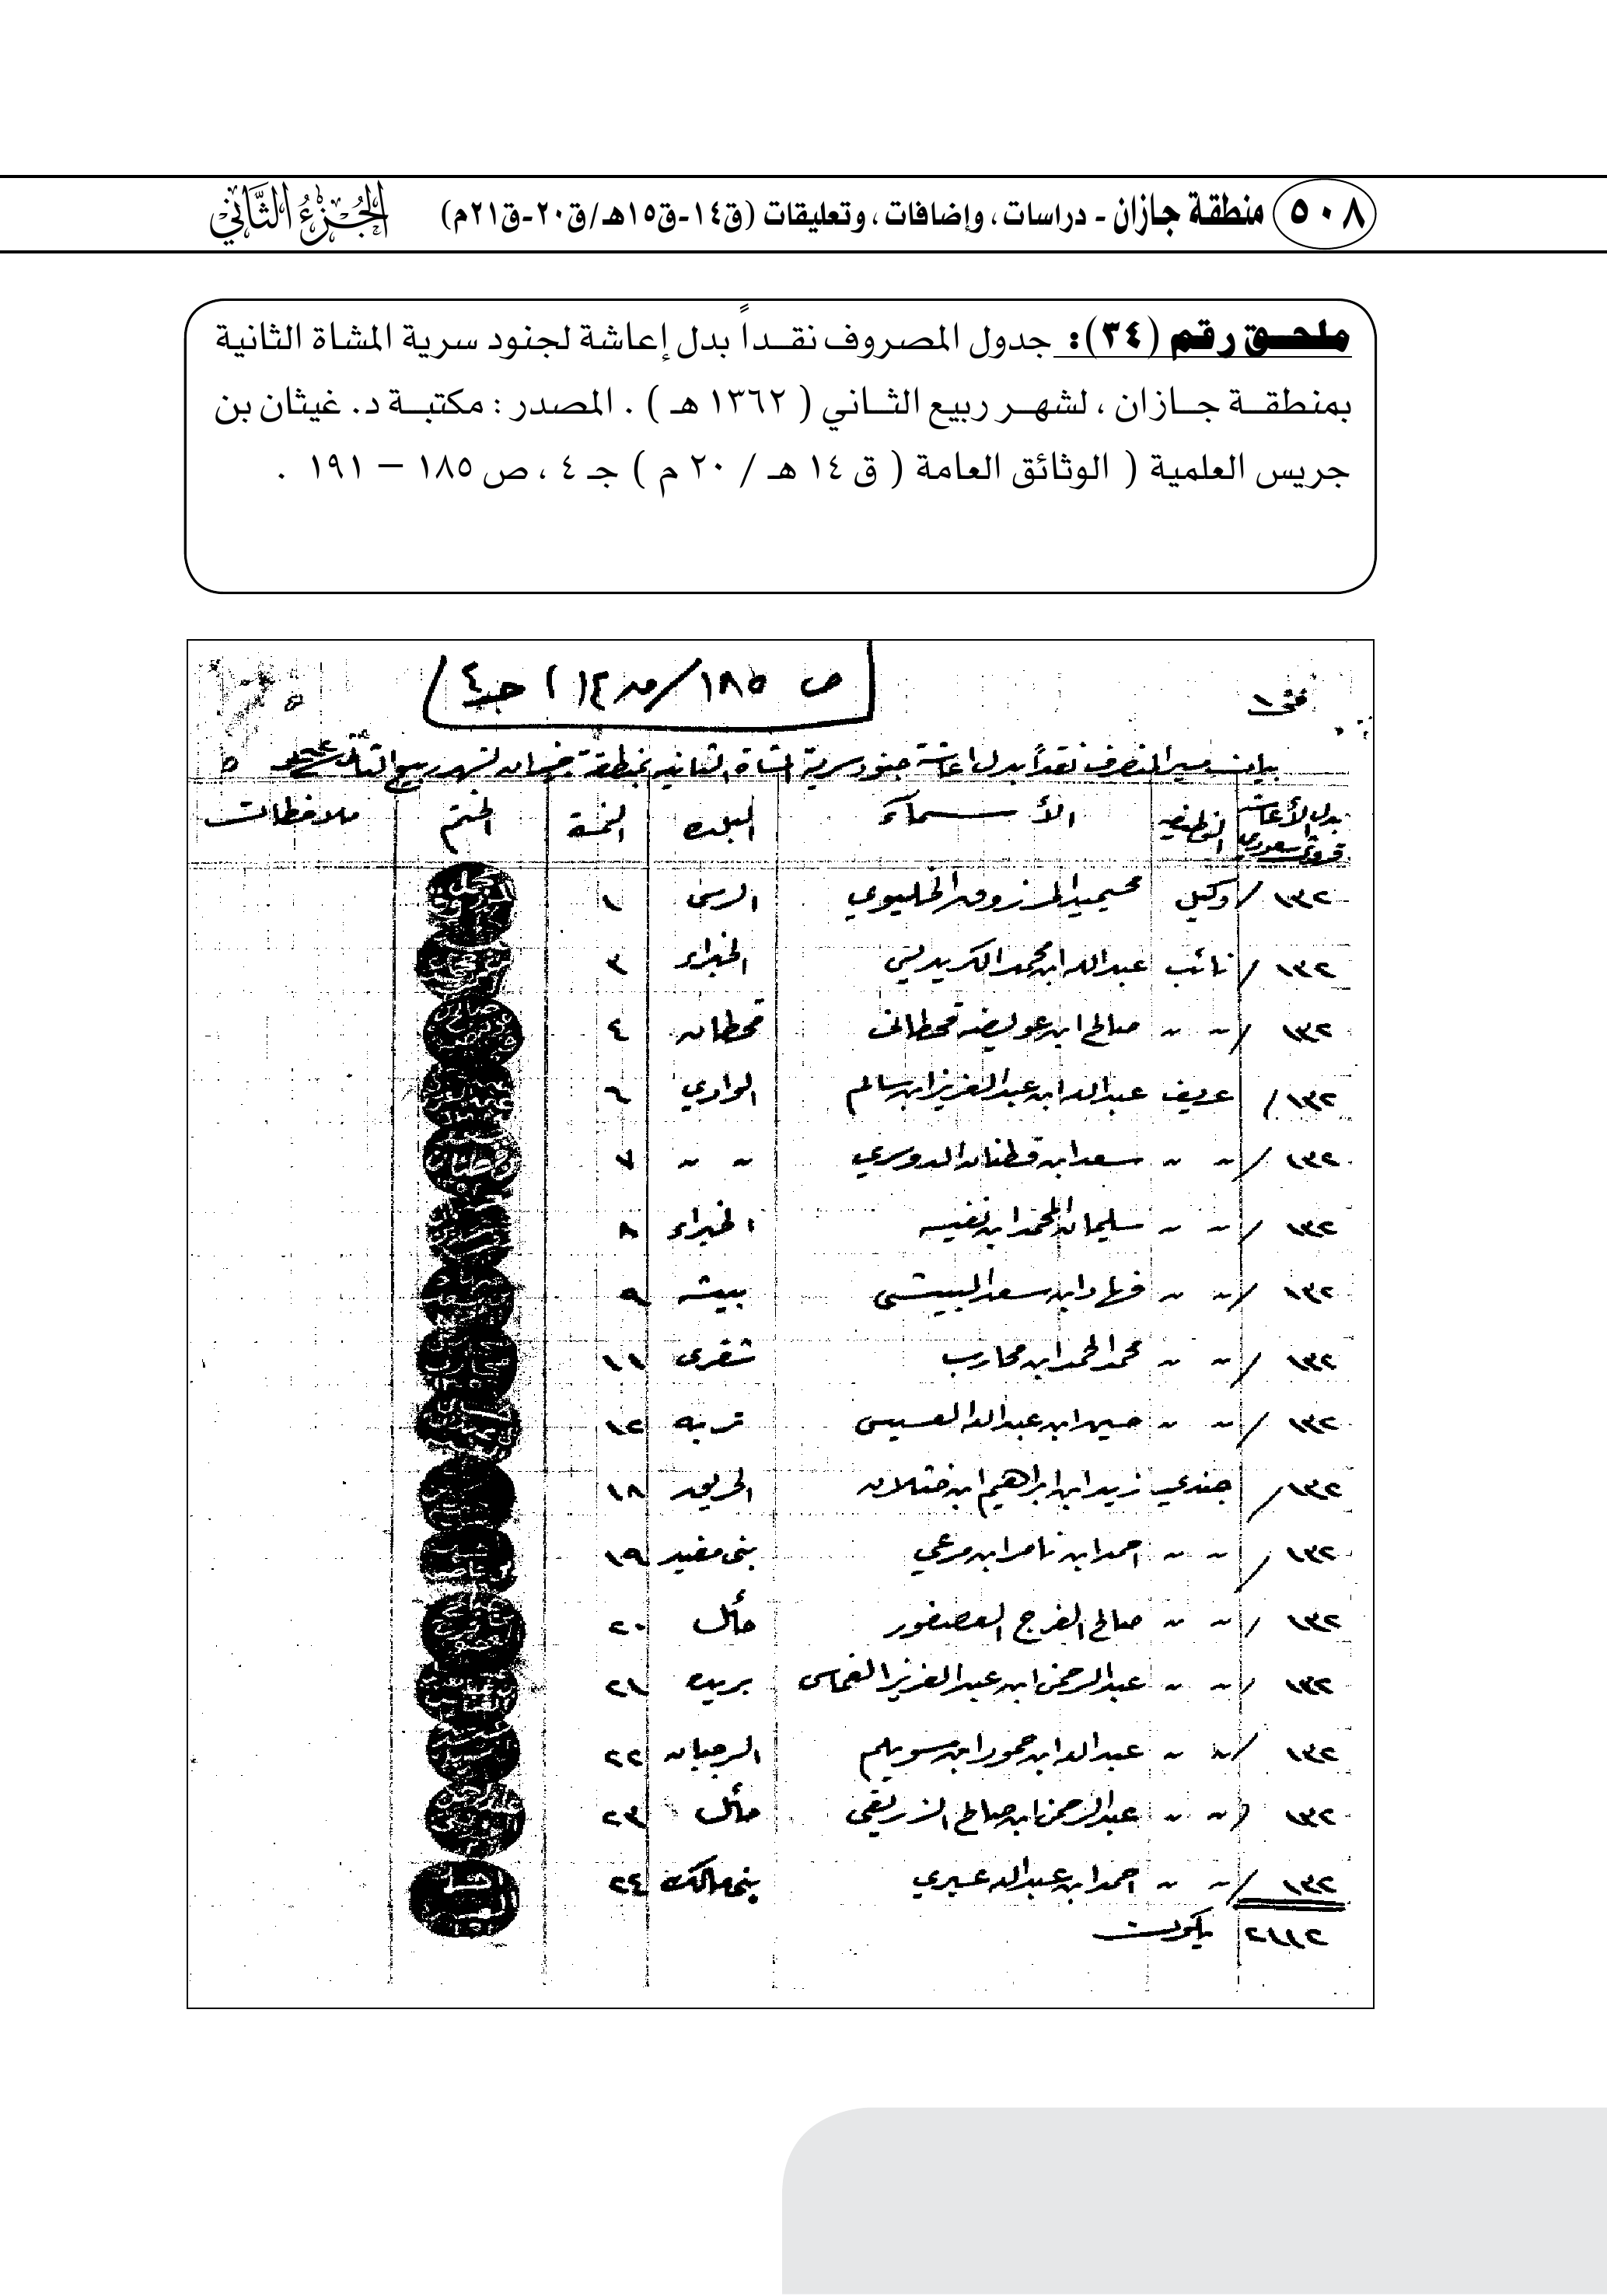 ٥٠٨ منطقة جازان - دراسات، وإضافات، وتعليقات (ق١٤-ق١٥هـ/ق٢٠-ق٢١م) الجزء الثاني
ملحق رقم (٣٤): جدول المصروف نقداً بدل إعاشة لجنود سرية المشاة الثانية
بمنطقة جازان ، لشهر ربيع الثاني ( ١٣٦٢ هـ ) . المصدر : مكتبة د. غيثان بن
جريس العلمية ( الوثائق العامة ( ق ١٤ هـ / ٢٠ م ) جـ ٤ ، ص ١٨٥ – ١٩١ .
ص ١٨٥/ ق ١٤ ) جـ ٤
بيان المنصرف نقداً بدل اعاشة جنود سرية المشاة الثانيه بمنطقة جيزان لشهر ربيع الثاني
بدل الأعاشه قروش سعودي الوظيفه الأسمآء البلده النمرة الختم ملاحظات
١٣٢ / وكيل المرزوق الخليوي الرس ١
١٣٢ / نائب عبدالله ابن محمد الكريديس الخبراء ٣
١٣٢ / " " صالح ابن عويضه قحطاني قحطان ٤
١٣٢ / عريف عبدالله ابن عبدالعزيز ابن سالم الوادي ٦
١٣٢ / " " سعد ابن قطنان الدوسري " " ٧
١٣٢ / " " سليمان المحمد ابن نفيسه الخبراء ٨
١٣٢ / " " فهاد ابن سعد البيشي بيشه ٩
١٣٢ / " " محمد الحمد ابن محارب شقرى ١١
١٣٢ / " " حسين ابن عبدالله العسيس تربه ١٢
١٣٢ / جندي زيد ابن ابراهيم ابن ختلان الحريق ١٨
١٣٢ / " " احمد ابن ناصر ابن مرعي بني مفيد ١٩
١٣٢ / " " صالح الفرج العصفور حائل ٢٠
١٣٢ / " " عبدالرحمن ابن عبدالعزيز الغماس بريده ٢١
١٣٢ / " " عبدالله ابن حمود ابن سويلم ٢٢
١٣٢ / " " عبدالرحمن ابن صالح الزريقي حائل ٢٣
١٣٢ / " " احمد ابن عبدالله عسيري بني مالك ٢٤
٢١١٢ يكون